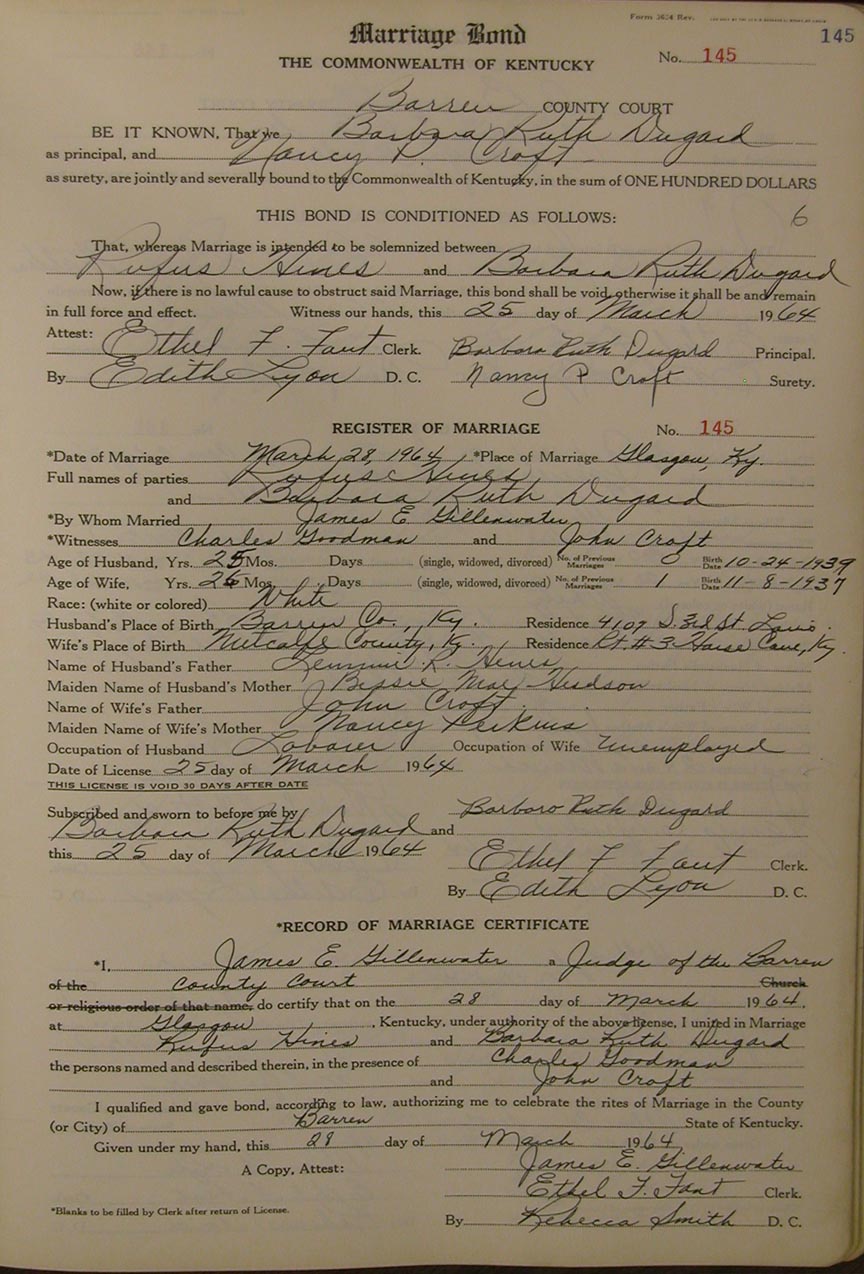 Form 3654 Rev.
145
Marriage Bond
No. 145
THE COMMONWEALTH OF KENTUCKY
Barren COUNTY COURT
BE IT KNOWN, That we Barbara Ruth Dugard
as principal, and Nancy P. Croft
as surety, are jointly and severally bound to the Commonwealth of Kentucky, in the sum of ONE HUNDRED DOLLARS
THIS BOND IS CONDITIONED AS FOLLOWS: 6
That, whereas Marriage is intended to be solemnized between
Rufus Hines and Barbara Ruth Dugard
Now, if there is no lawful cause to obstruct said Marriage, this bond shall be void, otherwise it shall be and remain
in full force and effect. Witness our hands, this 25 day of March 1964
Attest: Ethel F. Fant Clerk. Barbara Ruth Dugard Principal.
By Edith Lyon D. C. Nancy P Croft Surety.
REGISTER OF MARRIAGE No. 145
*Date of Marriage March 28, 1964 *Place of Marriage Glasgow, Ky.
Full names of parties Rufus Hines
and Barbara Ruth Dugard
*By Whom Married James E Gillenwater
*Witnesses Charles Goodman and John Croft
Age of Husband, Yrs. 25 Mos. Days (single, widowed, divorced) No. of Previous Marriages 0 Birth Date 10-24-1939
Age of Wife, Yrs. 26 Mos. Days (single, widowed, divorced) No. of Previous Marriages 1 Birth Date 11-8-1937
Race: (white or colored) White
Husband's Place of Birth Barren Co., Ky. Residence 4107 S. 3rd St. Louis.
Wife's Place of Birth Metcalfe County, Ky. Residence Rt. #3 Horse Cave, Ky.
Name of Husband's Father R. Hines
Maiden Name of Husband's Mother Bessie Mae Hudson
Name of Wife's Father John Croft
Maiden Name of Wife's Mother Nancy Perkins
Occupation of Husband Laborer Occupation of Wife Unemployed
Date of License 25 day of March 1964
THIS LICENSE IS VOID 30 DAYS AFTER DATE
Subscribed and sworn to before me by Barbara Ruth Dugard
Barbara Ruth Dugard and
this 25 day of March 1964 Ethel F Fant Clerk.
By Edith Lyon D. C.
*RECORD OF MARRIAGE CERTIFICATE
*I, James E. Gillenwater a Judge of the Barren
of the County Court Church
or religious order of that name, do certify that on the 28 day of March 1964,
at Glasgow, Kentucky, under authority of the above license, I united in Marriage
Rufus Hines and Barbara Ruth Dugard
the persons named and described therein, in the presence of Charles Goodman
and John Croft
I qualified and gave bond, according to law, authorizing me to celebrate the rites of Marriage in the County
(or City) of Barren State of Kentucky.
Given under my hand, this 28 day of March 1964
James E. Gillenwater
A Copy, Attest: Ethel F. Fant Clerk.
*Blanks to be filled by Clerk after return of License.
By Rebecca Smith D. C.